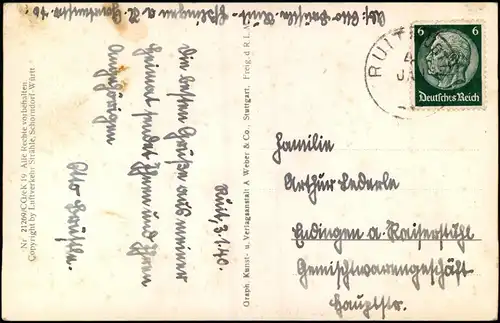 Abs: Otto Häußle Ruit-Eßlingen a. N. Hauptstr.
Ruit, 3.1.40.
Die besten Grüße aus meiner
Heimat sendet Ihnen und Ihren
Angehörigen
Otto Häußle.
Nr. 21269/CÜcK 19 Alle Rechte vorbehalten
Copyright by Luftverkehr Strähle, Schorndorf-Württ
Graph. Kunst- u. Verlagsanstalt A. Weber & Co., Stuttgart. Freig. d. R. L. M.
RUIT
6 6
Deutsches Reich
Familie
Arthur Lederle
Endingen a. Kaiserstuhl
Gemischtwarengeschäft
Hauptstr.